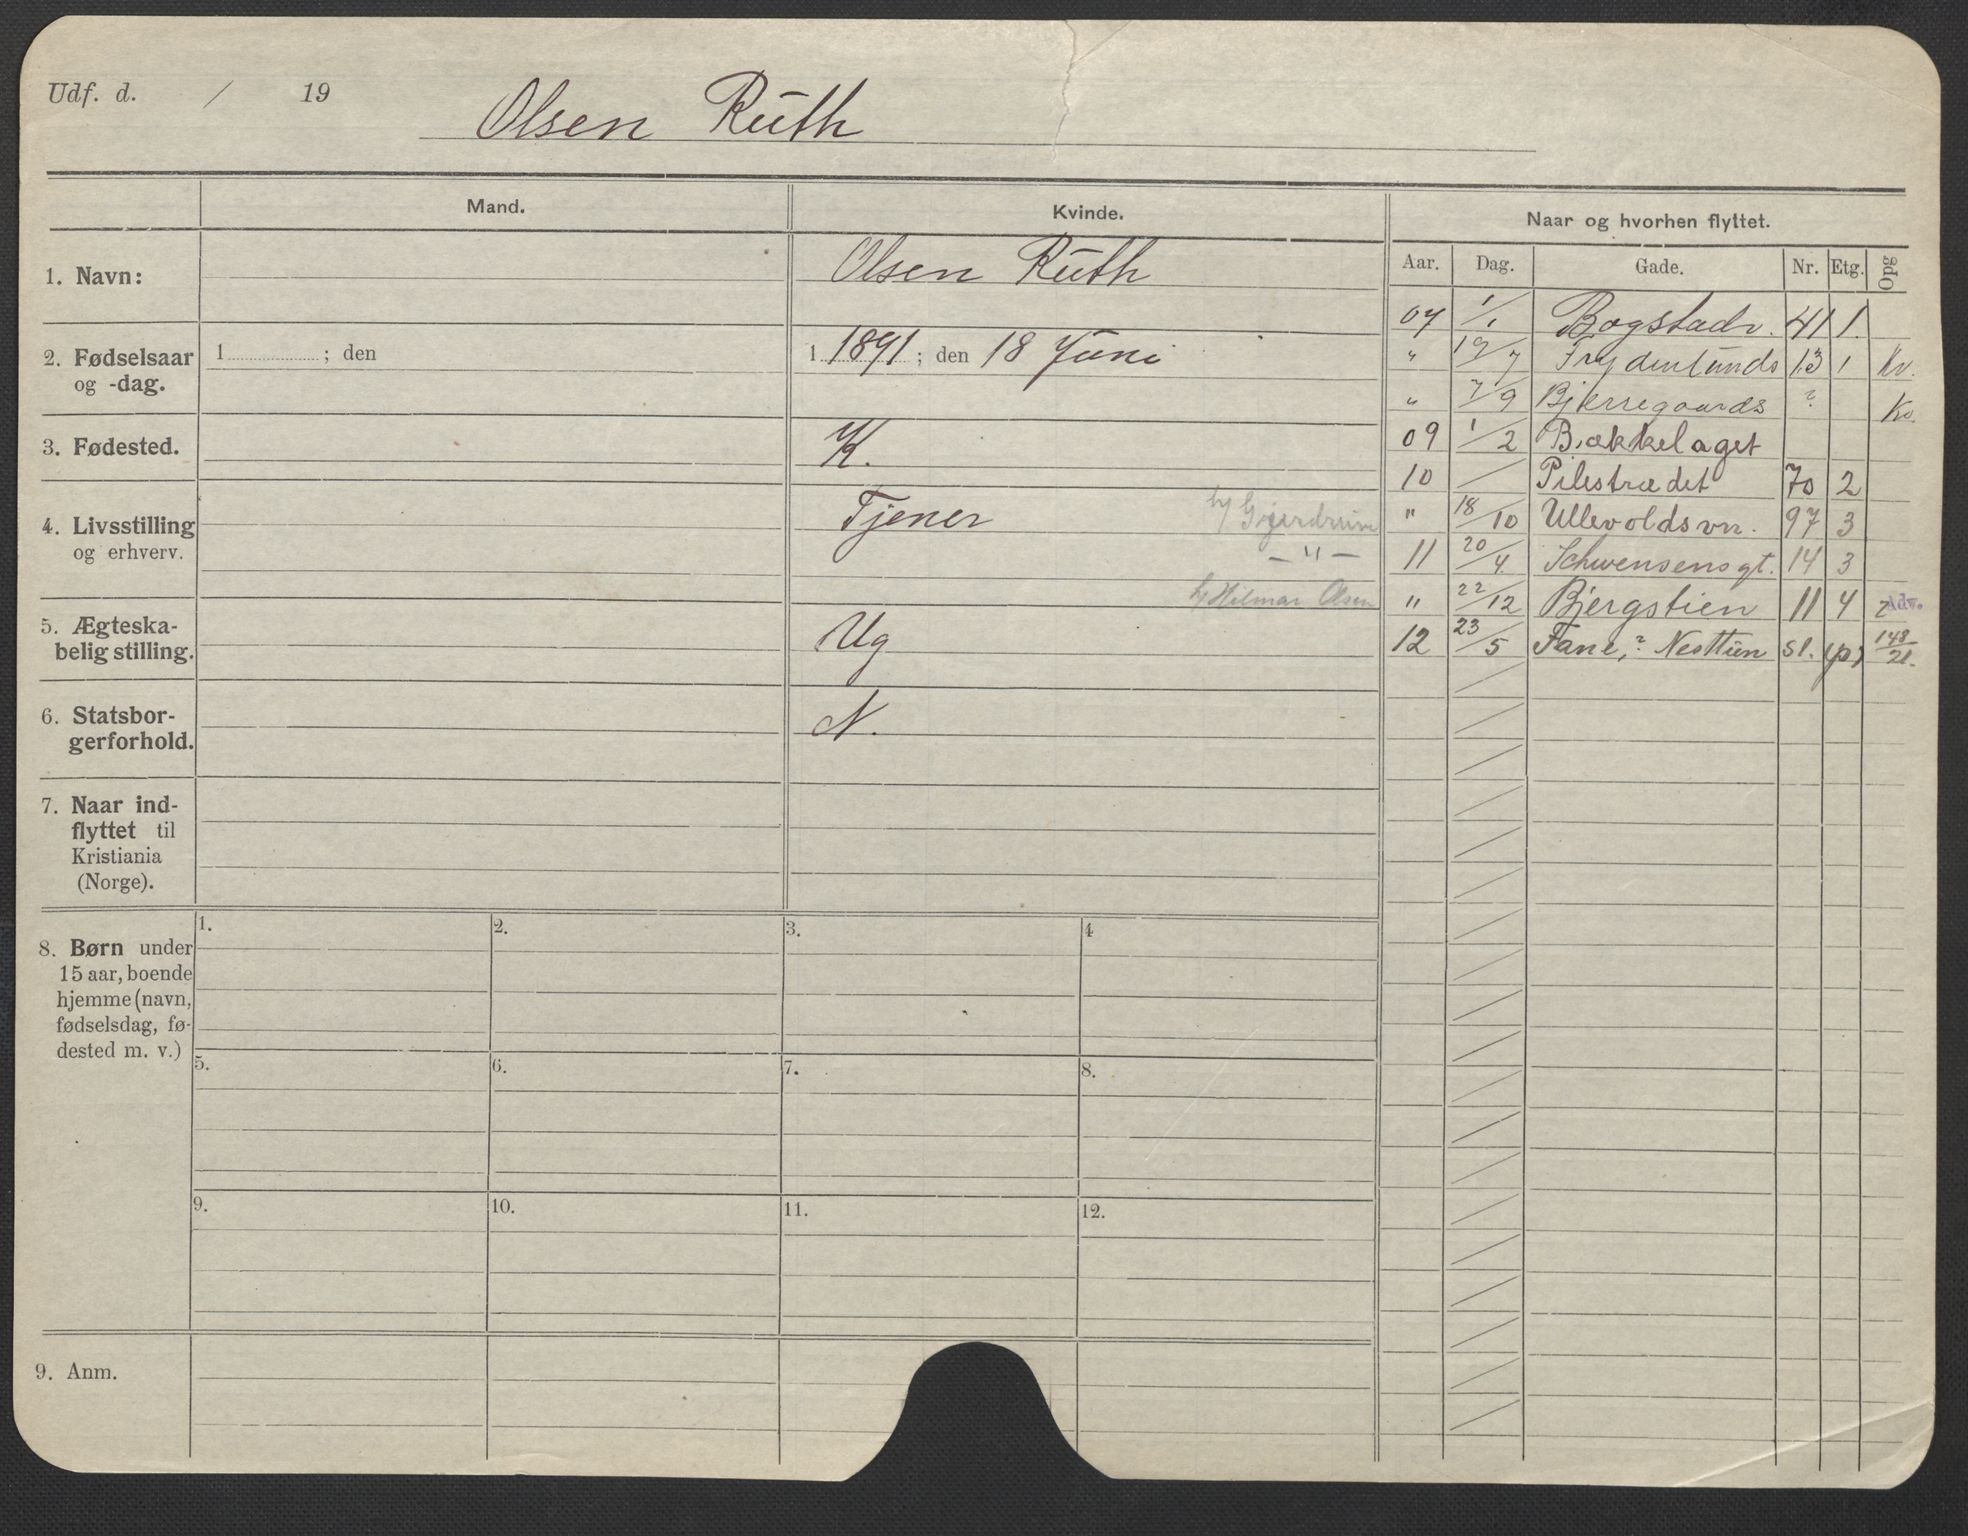 Udf. d. / 19
Olsen Ruth
Mand.
Kvinde.
Naar og hvorhen flyttet.
Aar. Dag. Gade. Nr. Etg. Opg
1. Navn:
Olsen Ruth
07 1/1 Bogstadv. 41 1.
2. Fødselsaar
og -dag.
1 ; den
1 1891 ; den 18 Juni
" 19/7 Frydenlunds 13 1 Kv.
" 7/9 Bjerregaards ? Kv.
3. Fødested.
K.
09 1/2 Bækkelaget
10 / Pilestrædet 70 2
4. Livsstilling
og erhverv.
Tjener
" 18/10 Ullevoldsvn. 97 3
— " —
11 20/4 Schwensensgt. 14 3
h/ Hilmar Olsen
" 22/12 Bjergstien 11 4 Adv.
5. Ægteska-
belig stilling.
Ug
12 23/5 Fane, ? Nesttun sl. (p) 148/21.
6. Statsbor-
gerforhold.
N.
7. Naar ind-
flyttet til
Kristiania
(Norge).
8. Børn under
15 aar, boende
hjemme (navn,
fødselsdag, fø-
dested m. v.)
1. 2. 3. 4
5. 6. 7. 8.
9. 10. 11. 12.
9. Anm.